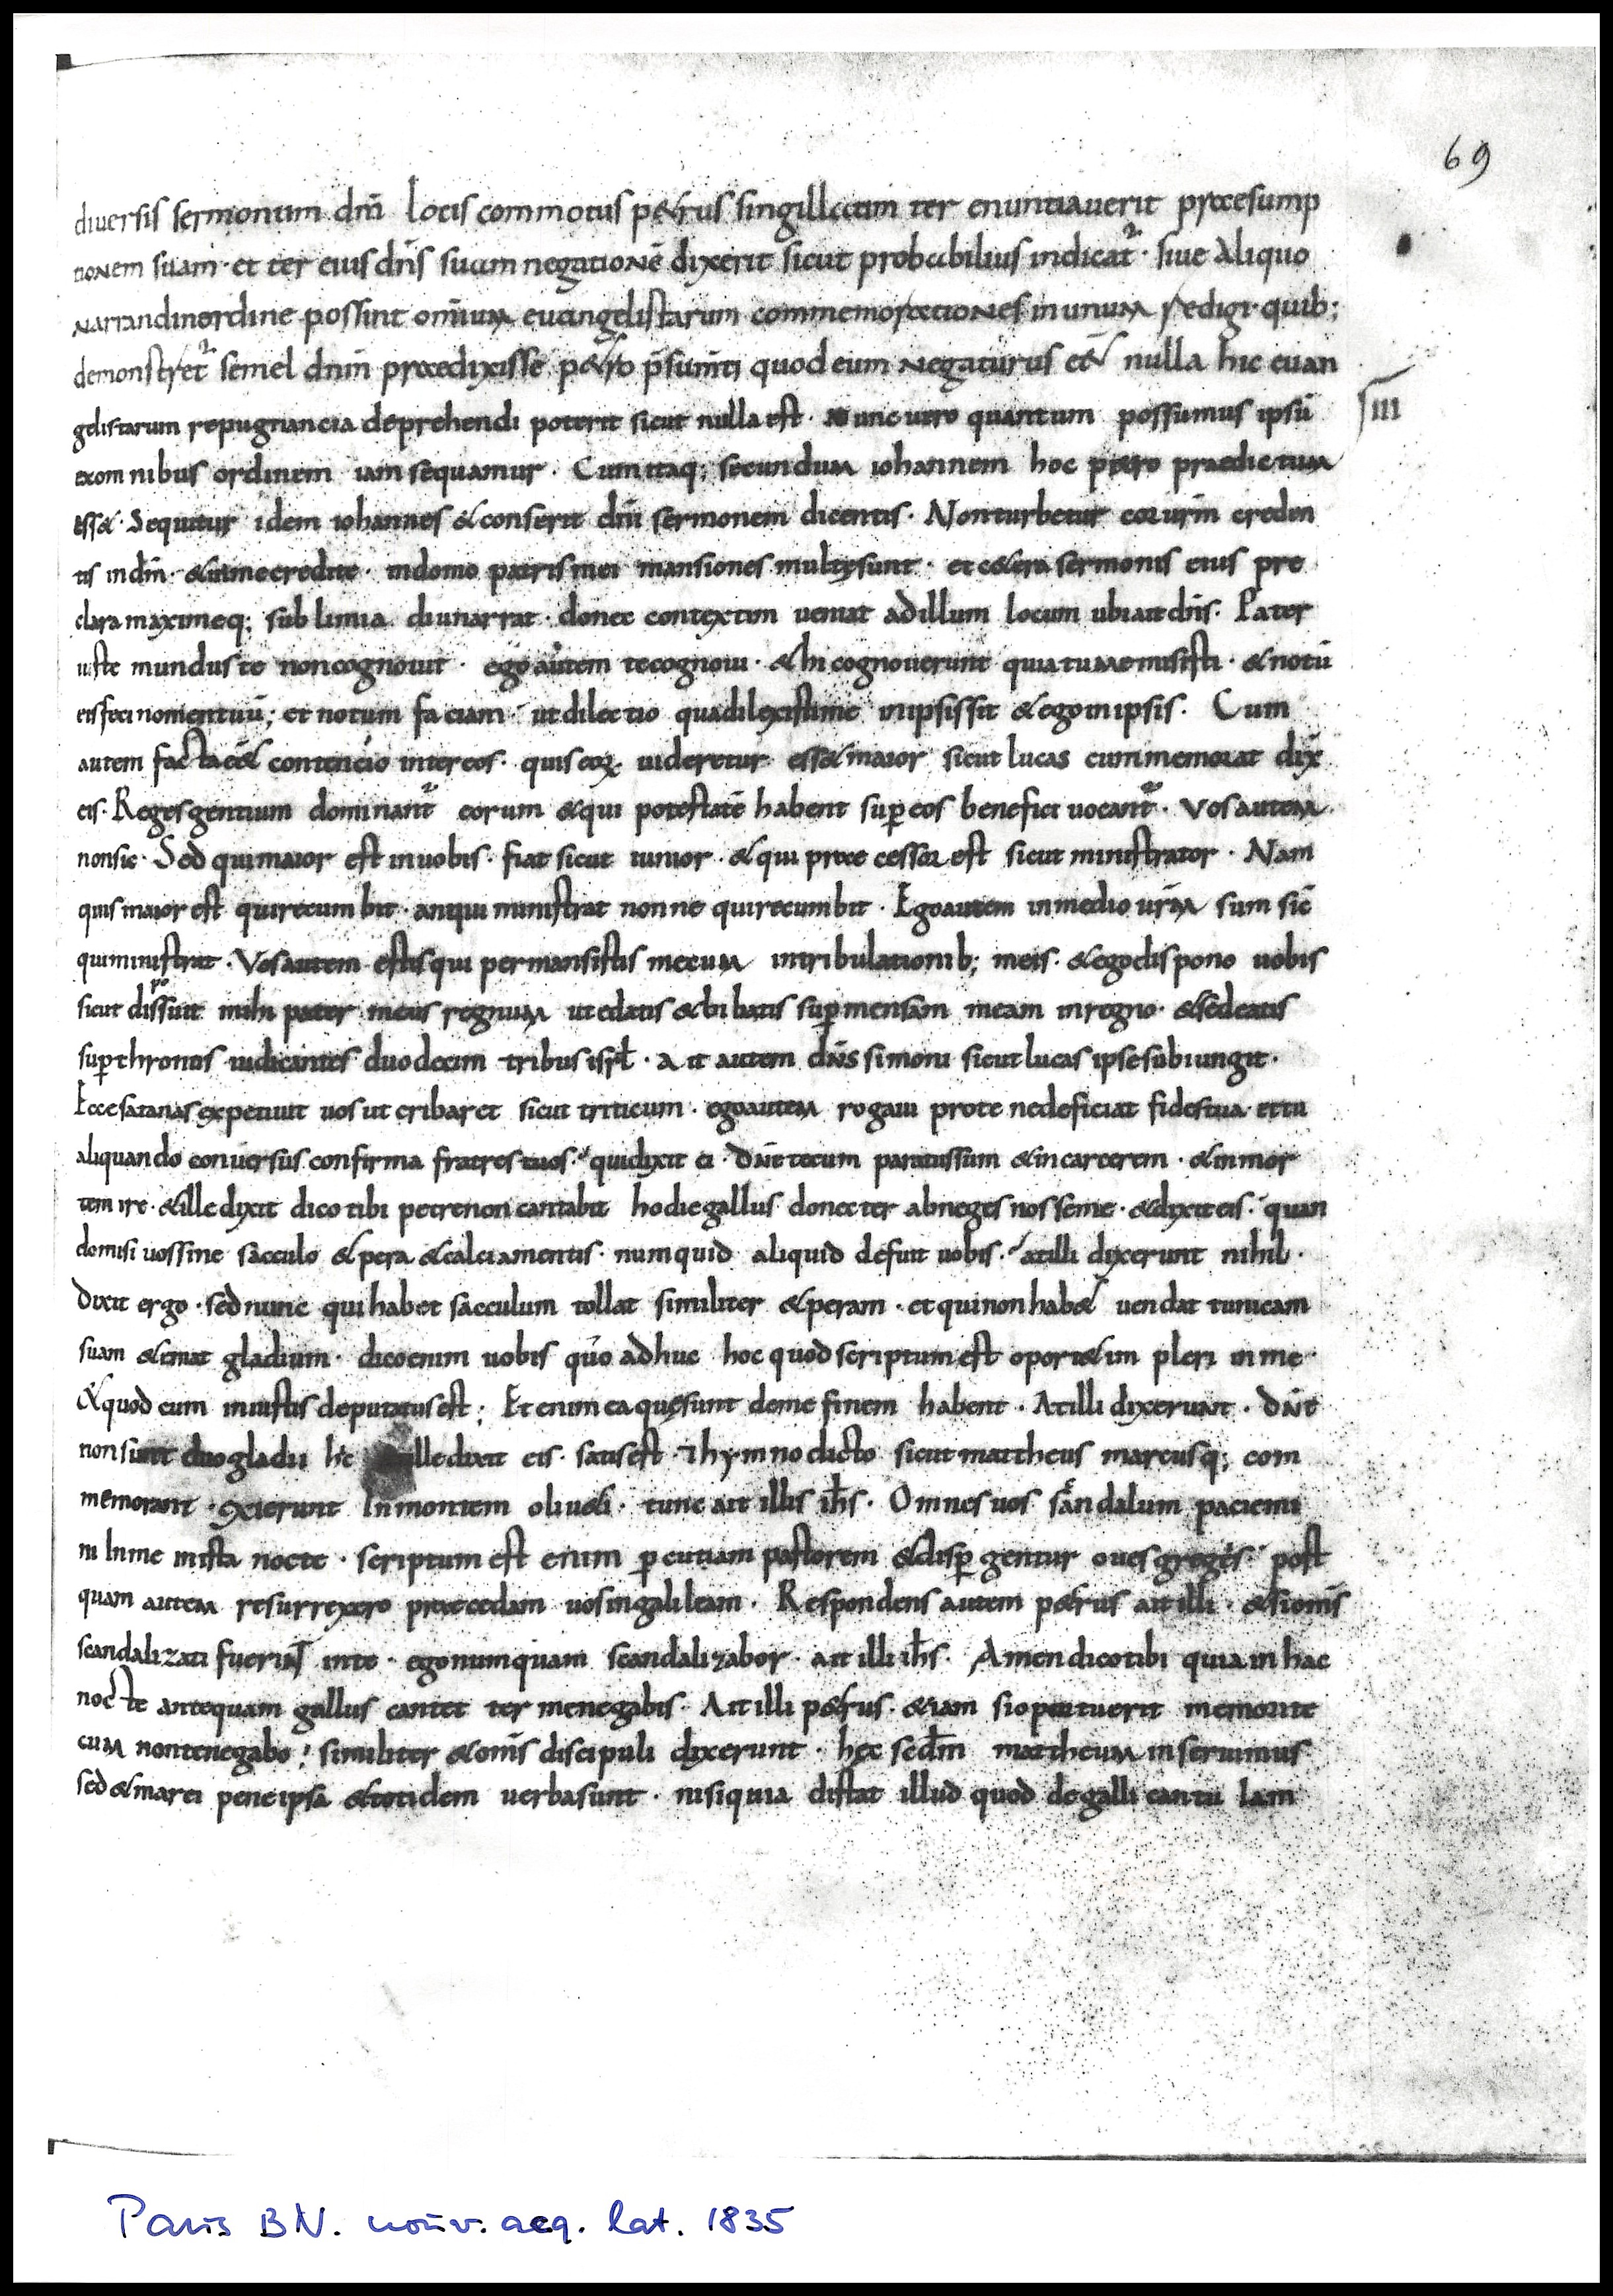 69
diuersis sermonum dn̄i locis commotus petrus singillatim ter enuntiauerit praesump
tionem suam · et ter eius dn̄s suam negationē dixerit sicut probabilius indicat᷑ · siue aliquo
narrandi nordine possint omīum euangelistarum commemorationes in unum redigi · quib;
demonstret᷑ semel dnm̄ praedixisse petro p̄sumti quod eum negaturus eēt nulla hic euan
gelistarum repugnancia deprehendi poterit sicut nulla est · nunc uero quantum possumus ipsū
III
ex omnibus ordinem iam sequamur · Cum itaq; secundum iohannem hoc petro praedictum
esset · Sequitur idem iohannes & conserit dn̄i sermonem dicentis · Non turbetur cor urm̄ creden
tis in dm̄ · & in me credite · in domo patris mei mansiones multę sunt · et cetera sermonis eius pre
clara maximeq; sublimia diu narrat · donec contextim ueniat ad illum locum ubi ait dn̄s · Pater
iuste mundus te non cognouit · ego autem te cognoui · & hi cognouerunt quia tu me misisti · & notū
eis feci nomen tuū; et notum faciam · ut dilectio qua dilexisti me in ipsis sit & ego in ipsis · Cum
autem facta eēt contencio inter eos · quis eoꝝ uideretur esset maior sicut lucas cummemorat dix̄
eis · Reges gentium dominant᷑ eorum & qui potestatē habent sup̱ eos benefici uocant᷑ · Vos autem
non sic · Sed qui maior est in uobis · fiat sicut iunior · & qui praecessor est sicut ministrator · Nam
quis maior est qui recumbit · an qui ministrat nonne qui recumbit · Ego autem in medio urm̄ sum sic̄
qui ministrat · Vos autem estis qui permansistis mecum in tribulationib; meis · & ego dispono uobis
sicut dispo suit mihi pater meus regnum ut edatis & bibatis sup̱ mensam meam in regno · & sedeatis
sup̱ thronos iudicantes duodecim tribus isrl̄ · ait autem dn̄s simoni sicut lucas ipse subiungit ·
Ecce satanas expetiuit uos ut cribaret sicut triticum · ego autem rogaui pro te ne deficiat fides tua · et tu
aliquando conuersus confirma fratres tuos · qui dixit ei · dn̄e tecum paratus sum & in carcerem · & in mor
tem ire · & ille dixit dico tibi petre non cantabit hodie gallus donec ter abneges nosse me · & dixit eis · quan
do misi uos sine sacculo & pera & calciamentis · numquid aliquid defuit uobis · at illi dixerunt nihil ·
Dixit ergo · sed nunc qui habet sacculum tollat similiter & peram · et qui non habet uendat tunicam
suam & emat gladium · dico enim uobis quō adhuc hoc quod scriptum est oportet impleri in me ·
Et quod cum iniustis deputatus est; Et enim ea quę sunt de me finem habent · At illi dixerunt · dn̄e
non sunt duo gladii hic ille dixit eis · satis est · Thymno dicto sicut mattheus marcusq; com
memorant · exierunt In montem oliueti · tunc ait illis ih̄s · Omnes uos sandalum paciemi
ni In me in ista nocte · scriptum est enim p̱cutiam pastorem & disp̱gentur oues gregis · post
quam autem resurrexero praecedam uos in galileam · Respondens autem petrus ait illi · & si om̄s
scandalizati fuerint in te · ego numquam scandalizabor · ait illi ih̄s · Amen dico tibi quia in hac
nocte antequam gallus cantet ter me negabis · Ait illi petrus · etiam si oportuerit me mori te
cum non te negabo! similiter & om̄s discipuli dixerunt · hęc secd̄m mattheum inseruimus
sed & marci pene ipsa & totidem uerba sunt · nisi quia distat illud quod de galli cantu Iam
Paris BN. nouv. acq. lat. 1835